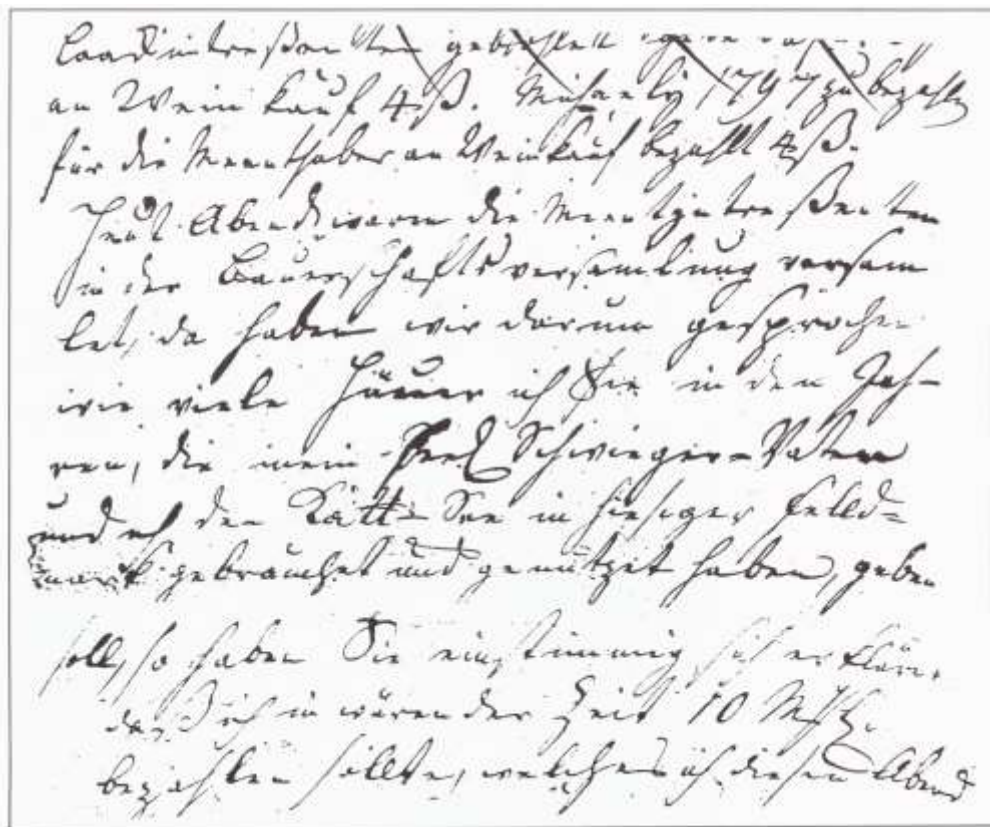 an Wein kauf 4 ß. Michaely 1797 zu bezahlen
für die Meenthaber an Weinkauf bezahlt 4 ß.
Heut Abend waren die Meentzintreßenten
in der Bauerschafts versamlung versam
let, da haben wir darum gesprochen
wie viele Häuer ich Sie in den Jah-
ren, die mein Seel Schwieger-Vater
und ich den Kätt-See in hiesiger Felld=
mark gebrauchet und genützet haben, geben
soll, so haben Sie einstimmig sich erklärt,
daß ich in wären der Zeit 10 M
bezahlen sollte, welches ich diesen Abend